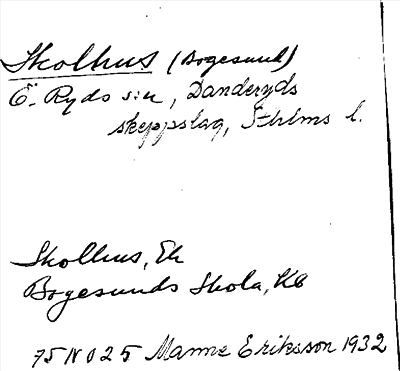 Skolhus (Bogesund)
Ö. Ryds sn, Danderyds
skeppslag, Sthlms l.
Skolhus, Ek
Bogesunds Skola, KB
75 NO 25 Manne Eriksson 1932